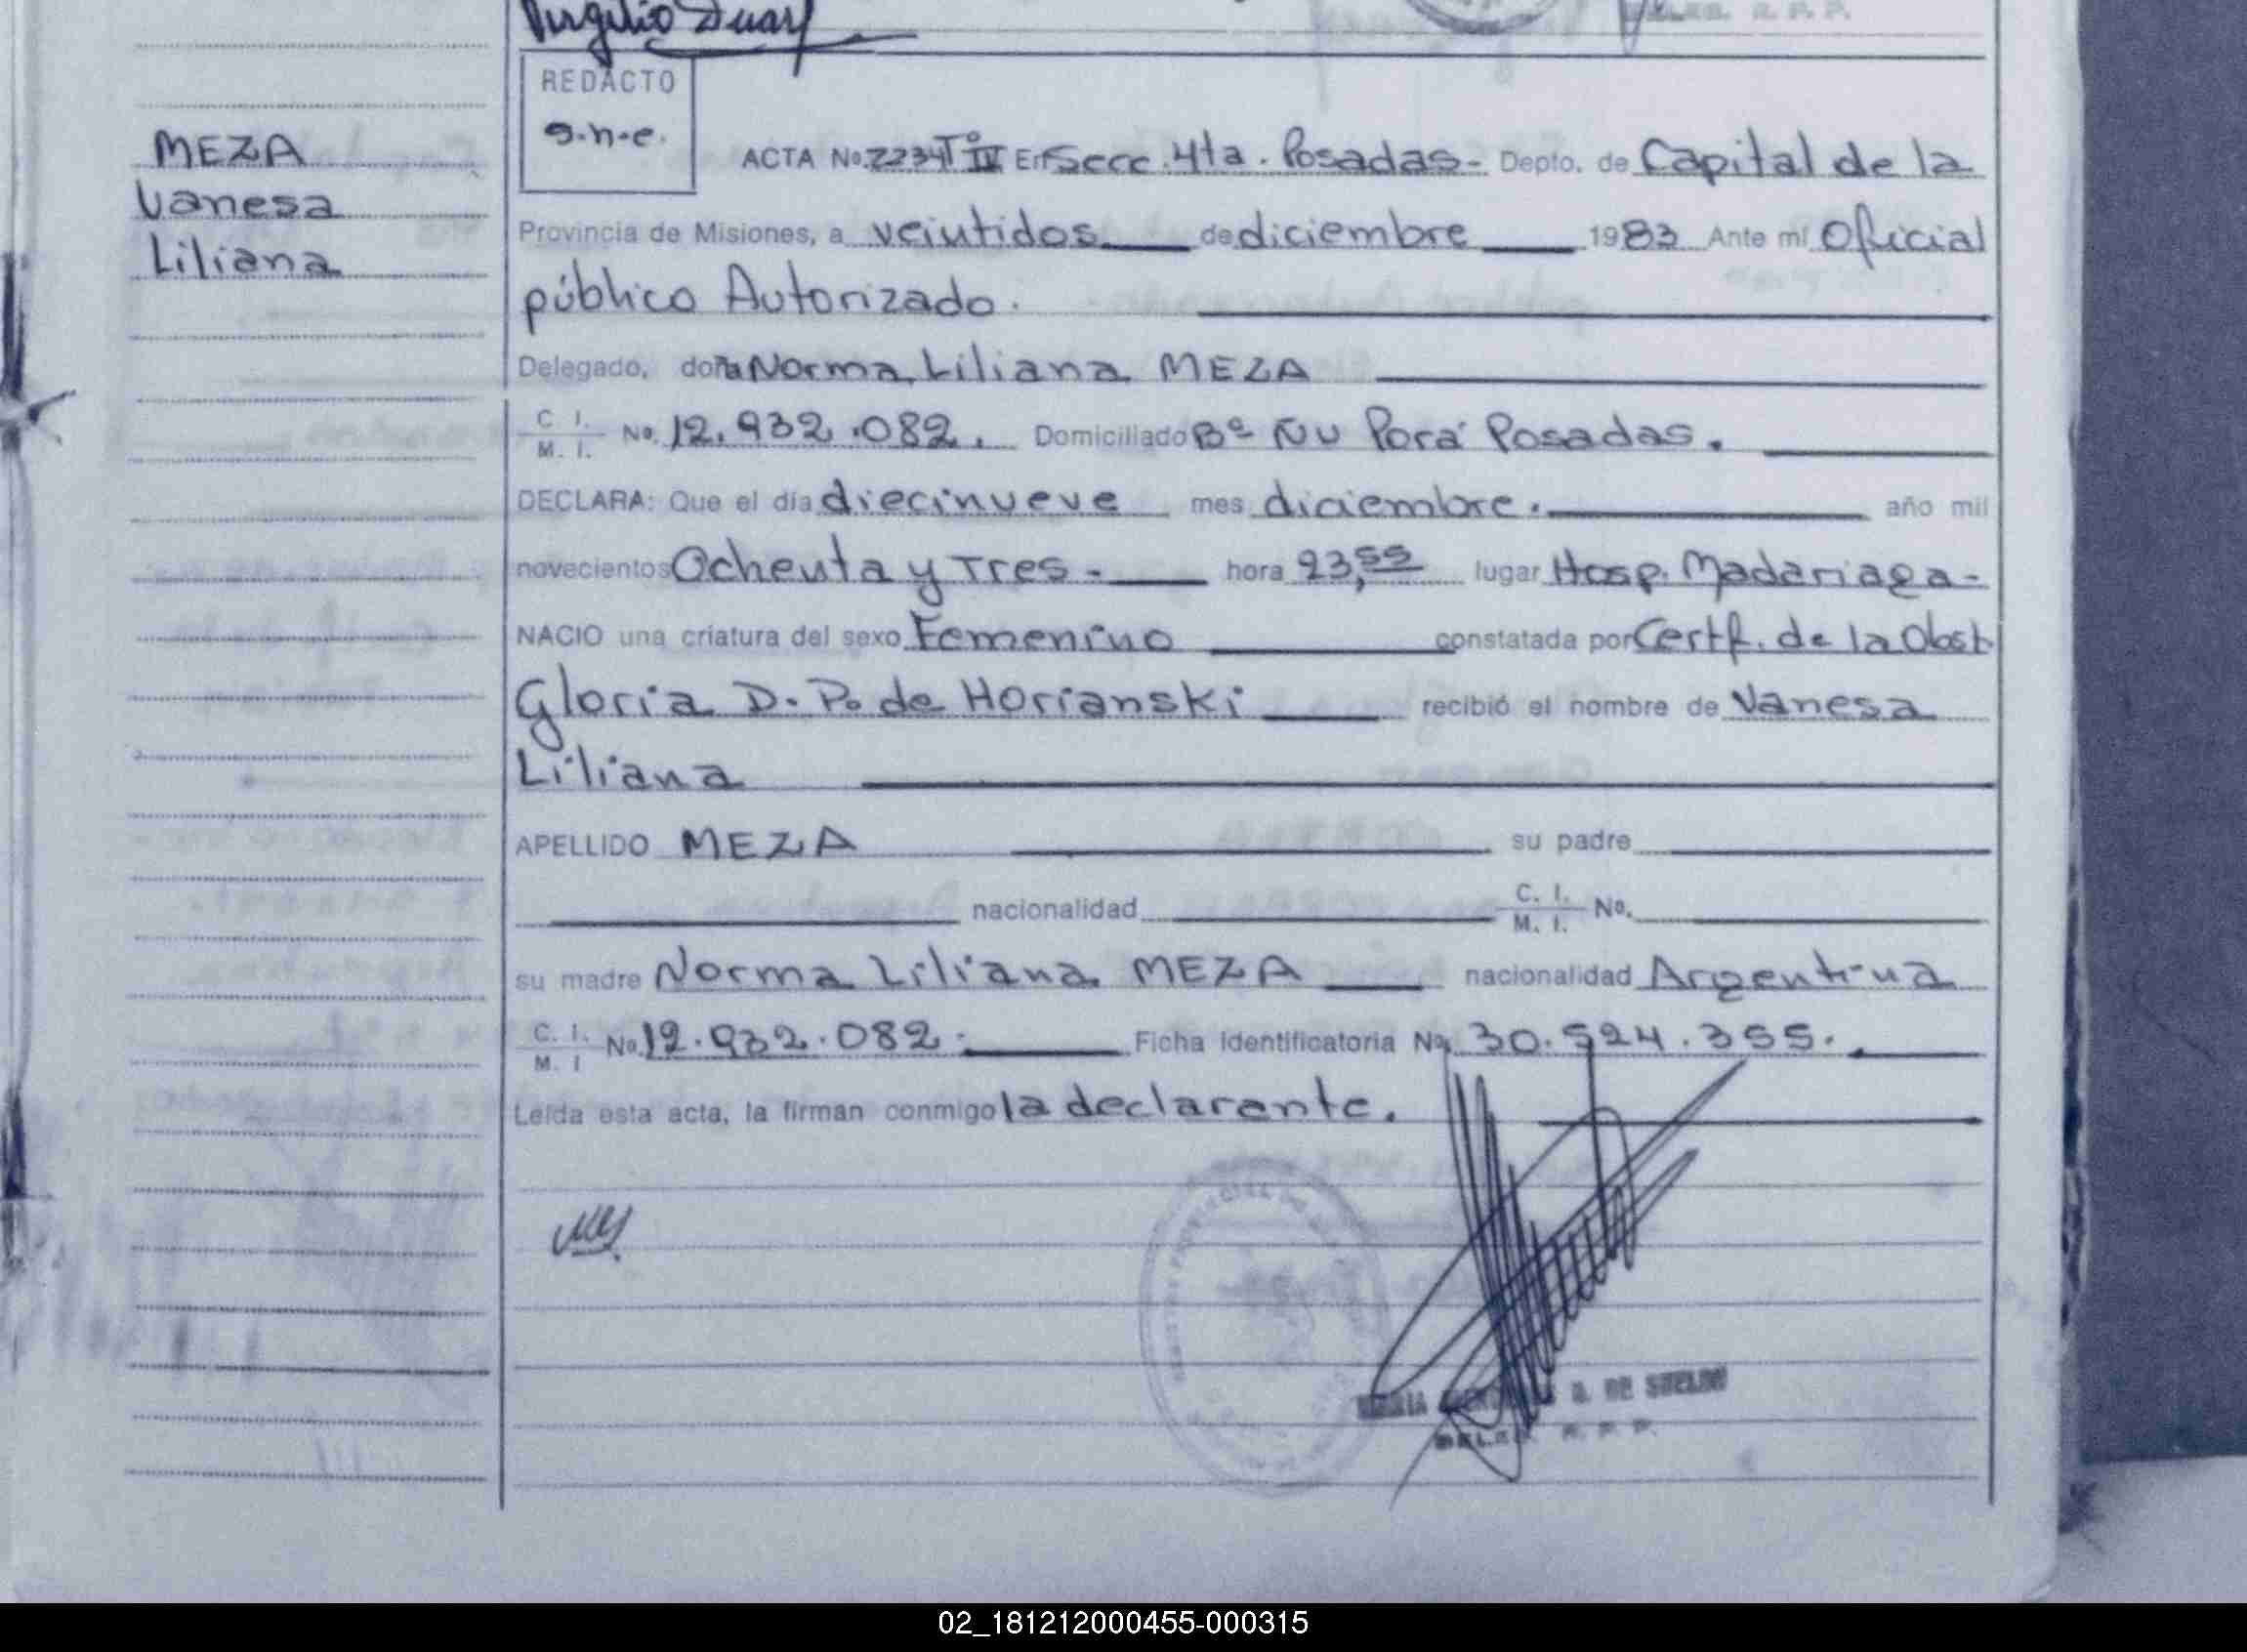 Virgilio Duar
REDACTO
g.n.e.
MEZA
Vanesa
Liliana
ACTA No. 2234 Tº IV En Secc. 4ta. Posadas- Depto. de Capital de la
Provincia de Misiones, a veintidos de diciembre 1983 Ante mí Oficial
público Autorizado.
Delegado, doña Norma Liliana MEZA
C. I.
M. I.
No. 12.932.082. Domiciliado Bº Ñu Porá Posadas.
DECLARA: Que el día diecinueve mes diciembre. año mil
novecientos Ochenta y Tres- hora 23,55 lugar Hosp. Madariaga-
NACIO una criatura del sexo Femenino constatada por Certf. de la Obst.
Gloria D. P. de Horianski recibió el nombre de Vanesa
Liliana
APELLIDO MEZA su padre
nacionalidad C. I. No.
M. I.
su madre Norma Liliana MEZA nacionalidad Argentina
C. I.
M. I
No 12.932.082. Ficha identificatoria No. 30.524.355.
Leída esta acta, la firman conmigo la declarante.
DE
02_181212000455-000315